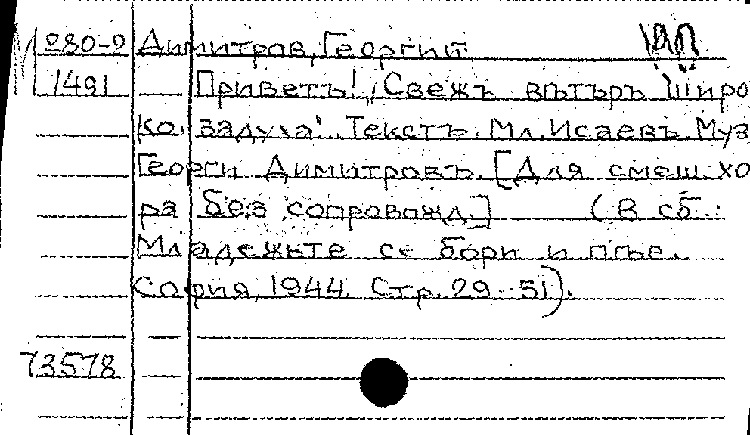 М 280-9 Димитров, Георгий
1491 Приветъ! „Свежъ вѣтъръ широ
ко задуха". Текстъ. Мл. Исаевъ. Муз
Георги Димитровъ. [Для смеш. хо
ра без сопровожд.] (В сб.:
Младежьте се бори и пѣе.
София, 1944. Стр. 29-31).
73578